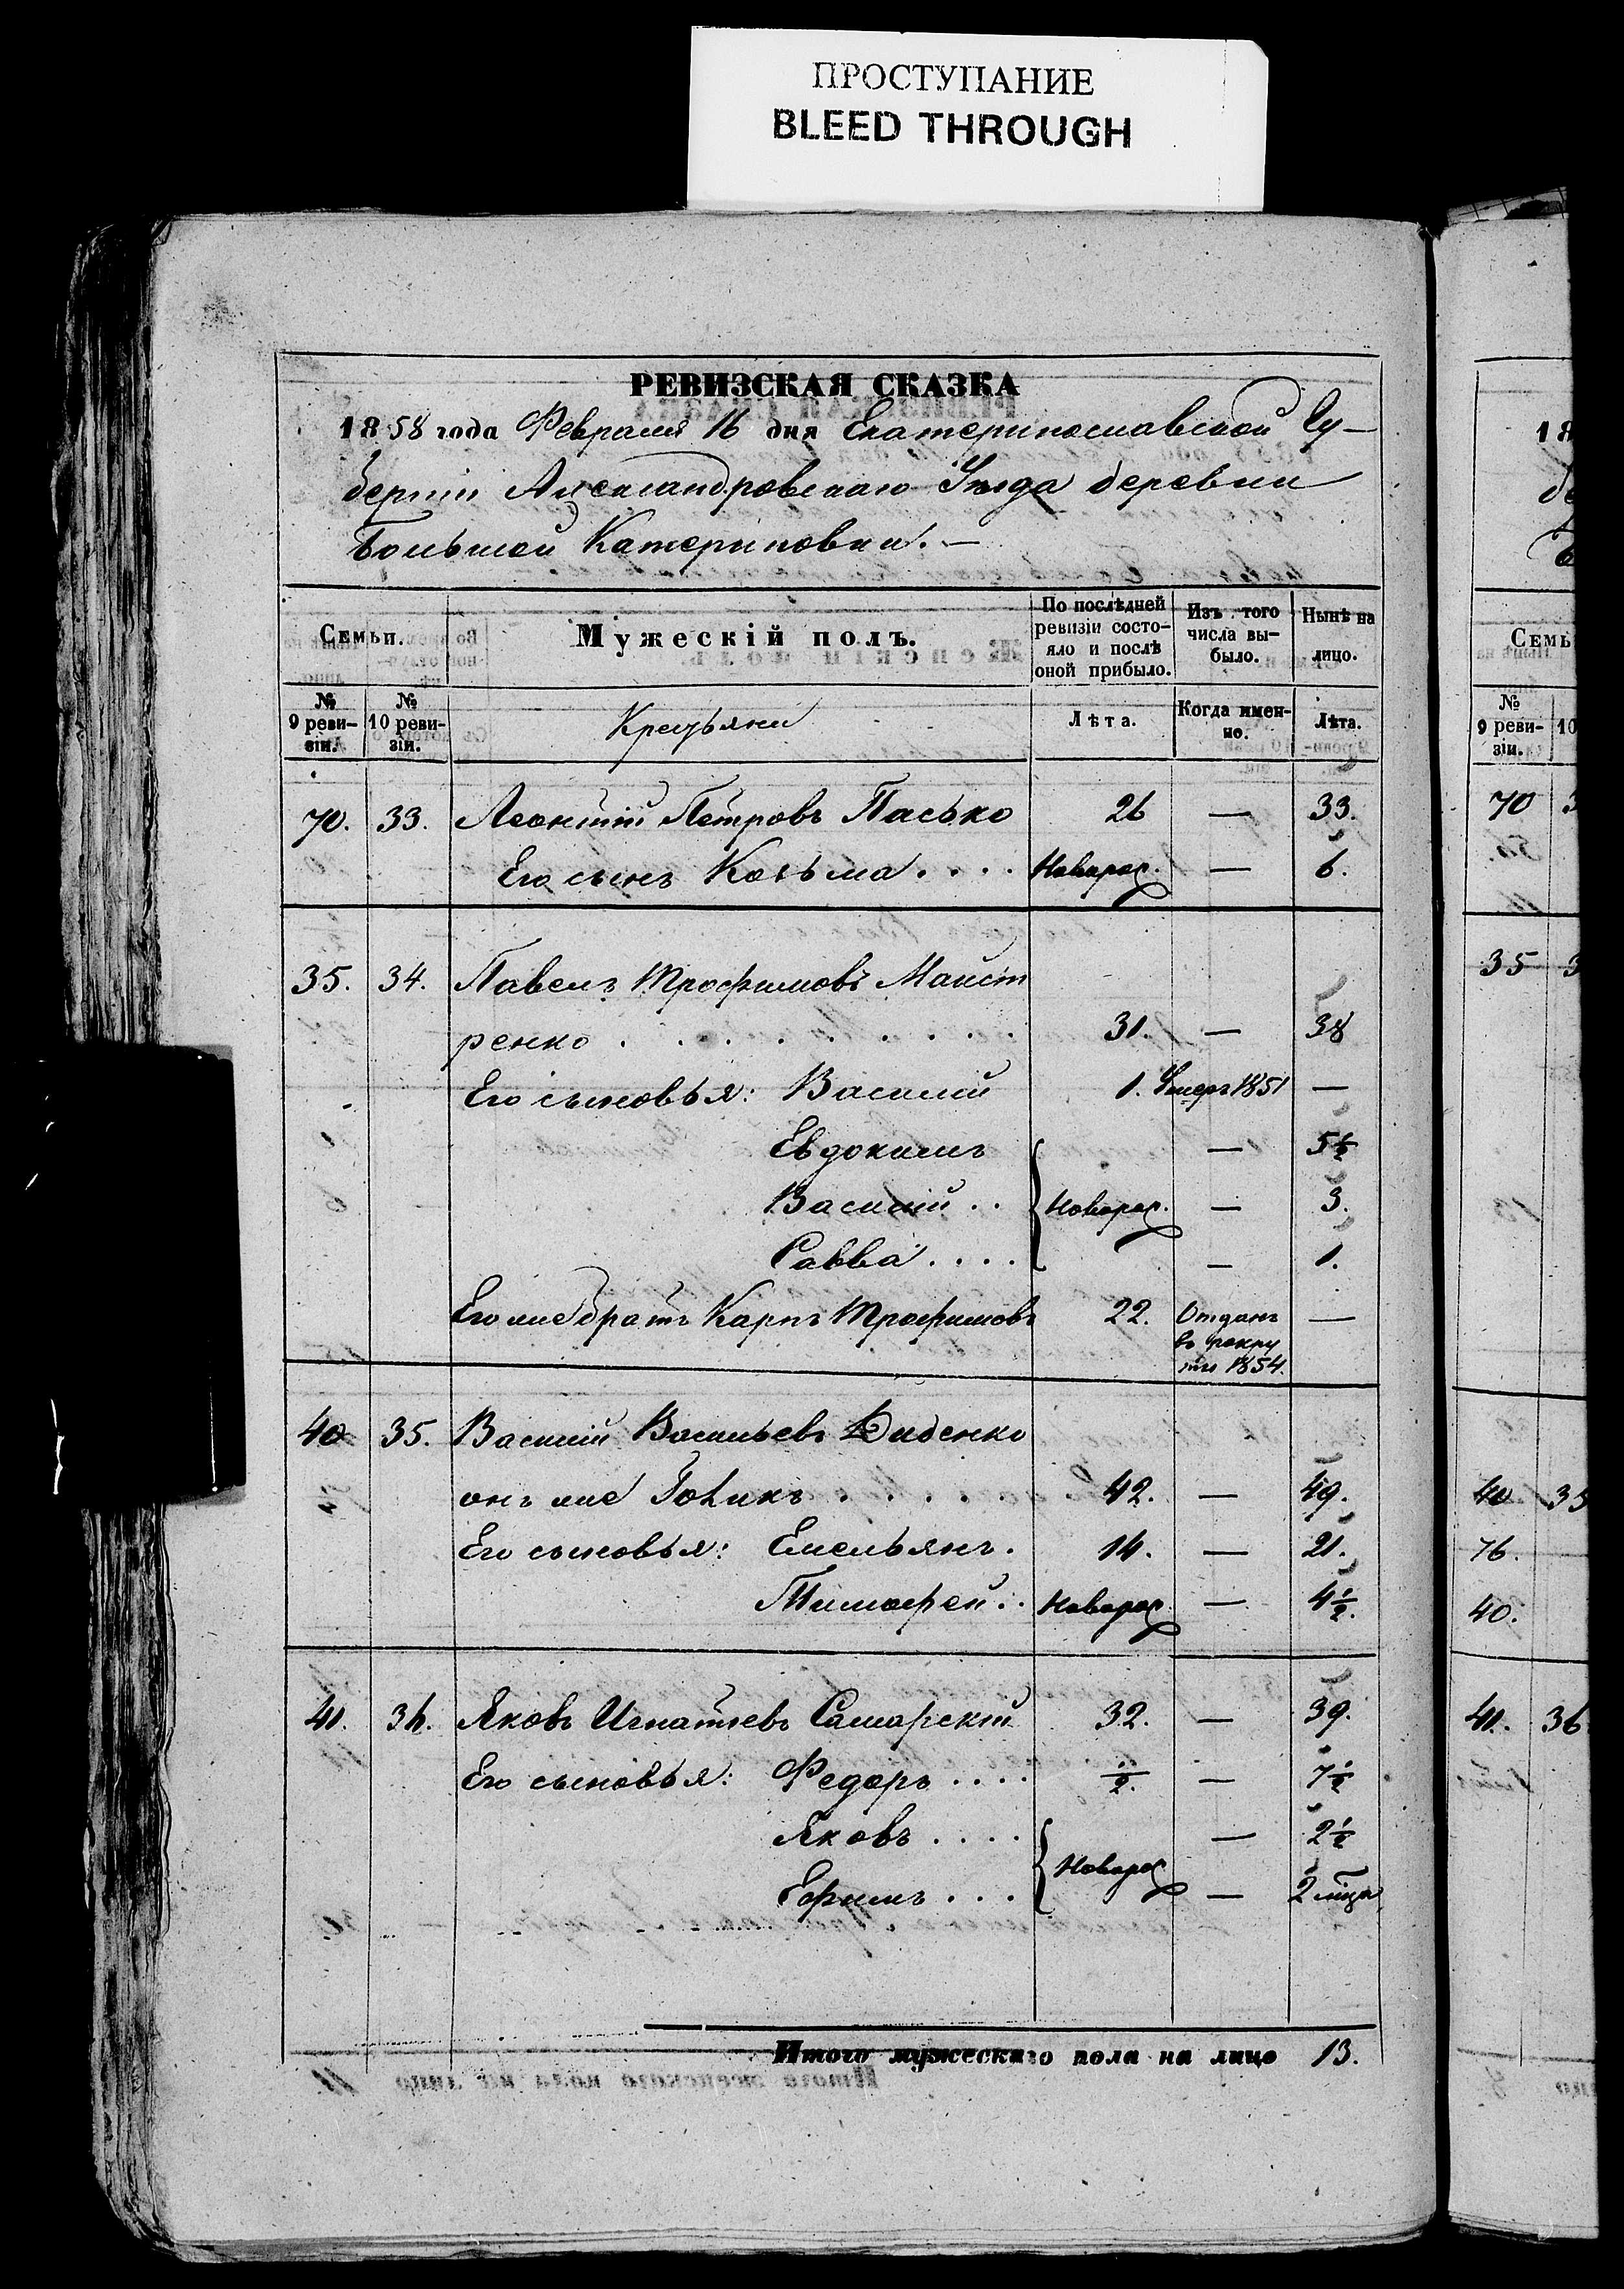 ПРОСТУПАНИЕ
BLEED THROUGH
РЕВИЗСКАЯ СКАЗКА
1858 года Февраля 16 дня Екатеринославской Гу-
берніи Александровскаго Уѣзда деревни
Большой Катериновки. —
Семьи. Мужескій полъ. По послѣдней ревизіи состояло и послѣ оной прибыло. Изъ того числа выбыло. Нынѣ на лицо.
№ 9 ревизіи. № 10 ревизіи. Крестьяне Лѣта. Когда именно. Лѣта.
70. 33. Леонтій Петровъ Пасько 26 — 33.
Его сынъ Козьма . . . . Новорож. — 6.
35. 34. Павелъ Трофимовъ Маист
ренко . . . . . . . . 31. — 38
Его сыновья: Василій 1. Умеръ 1851 —
Евдокимъ — 5½
Василій . . Новорож. — 3.
Савва . . . . — 1.
Его же братъ Карпъ Трофимовъ 22. Отданъ —
въ рекру
ты 1854.
40 35. Василій Васильевъ Диденко
онъ же . . . . . 42. — 49.
Его сыновья: Емельянъ. 14. — 21.
Тимофей . . Новорож. — 4½.
41. 36. Яковъ Игнатьевъ Самарскій 32. — 39.
Его сыновья: Федоръ . . . . ½. — 7½
Яковъ . . . . — 2½
Новорож
Ефимъ . . . — 2 мѣся
Итого мужескаго пола на лицо 13.
18
Семь
№ 9 ревизіи. 10
70 3
35 3
40 35
76.
40.
41. 36